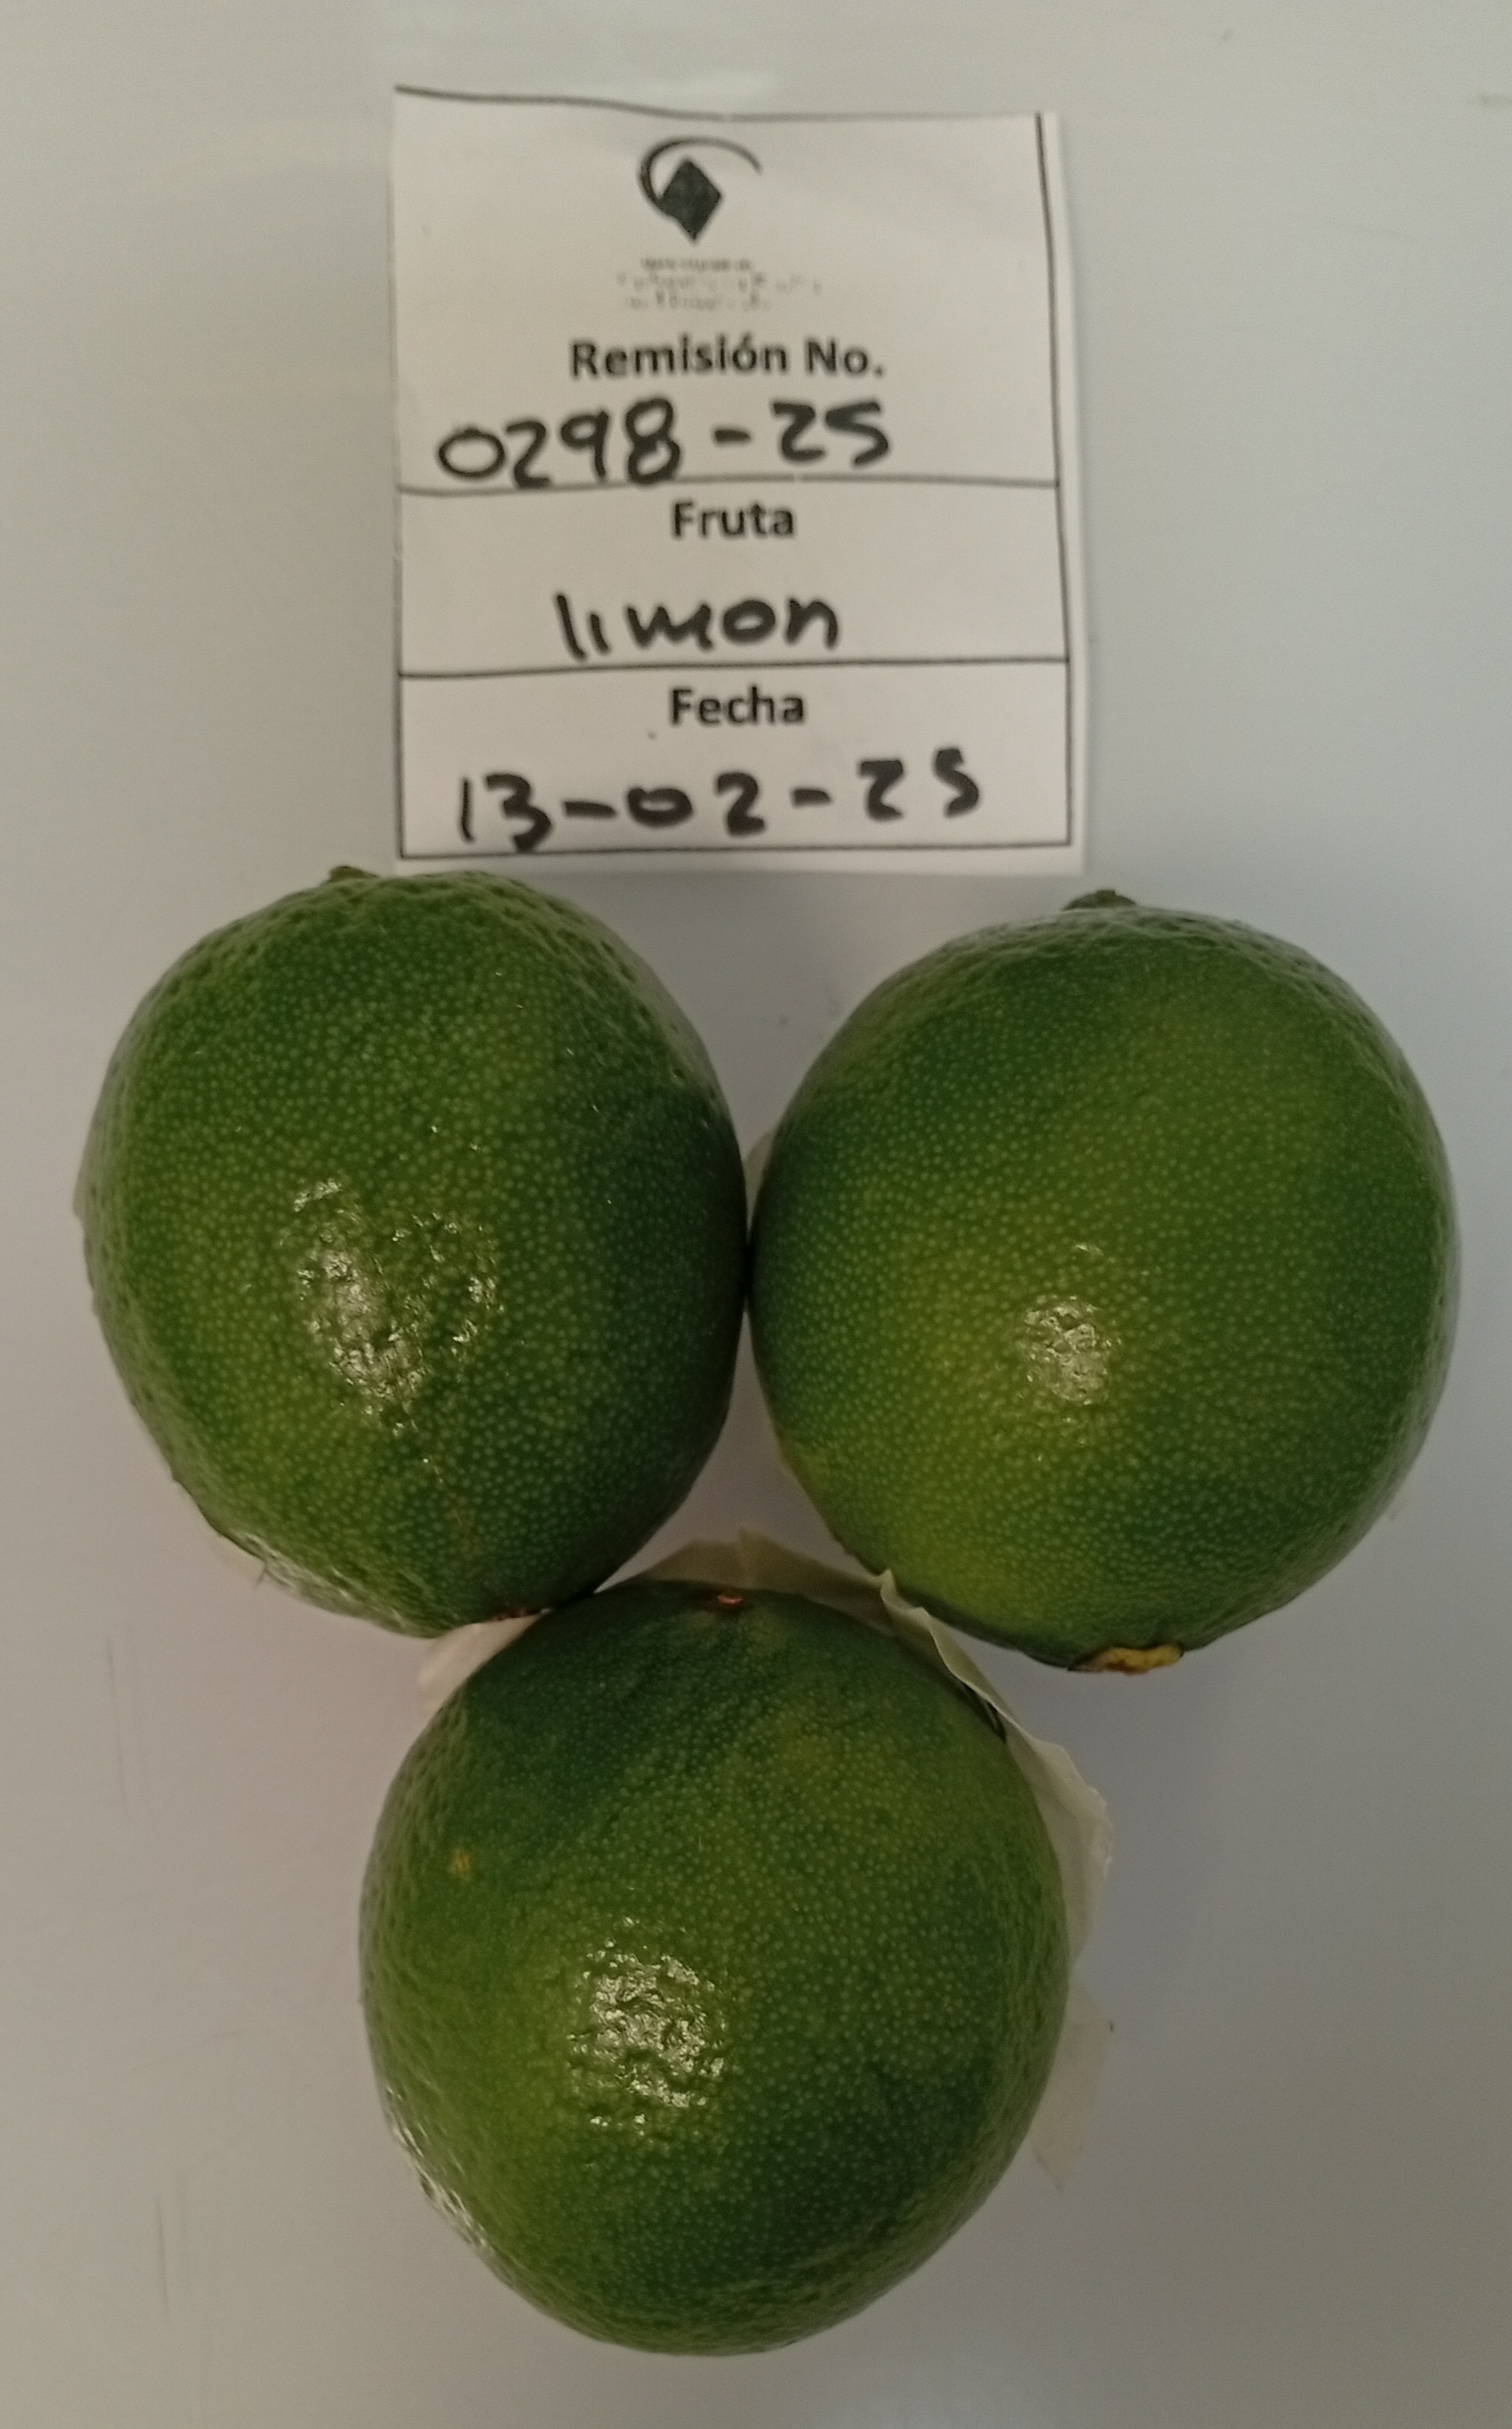 Remisión No.
0298-25
Fruta
limon
Fecha
13-02-25